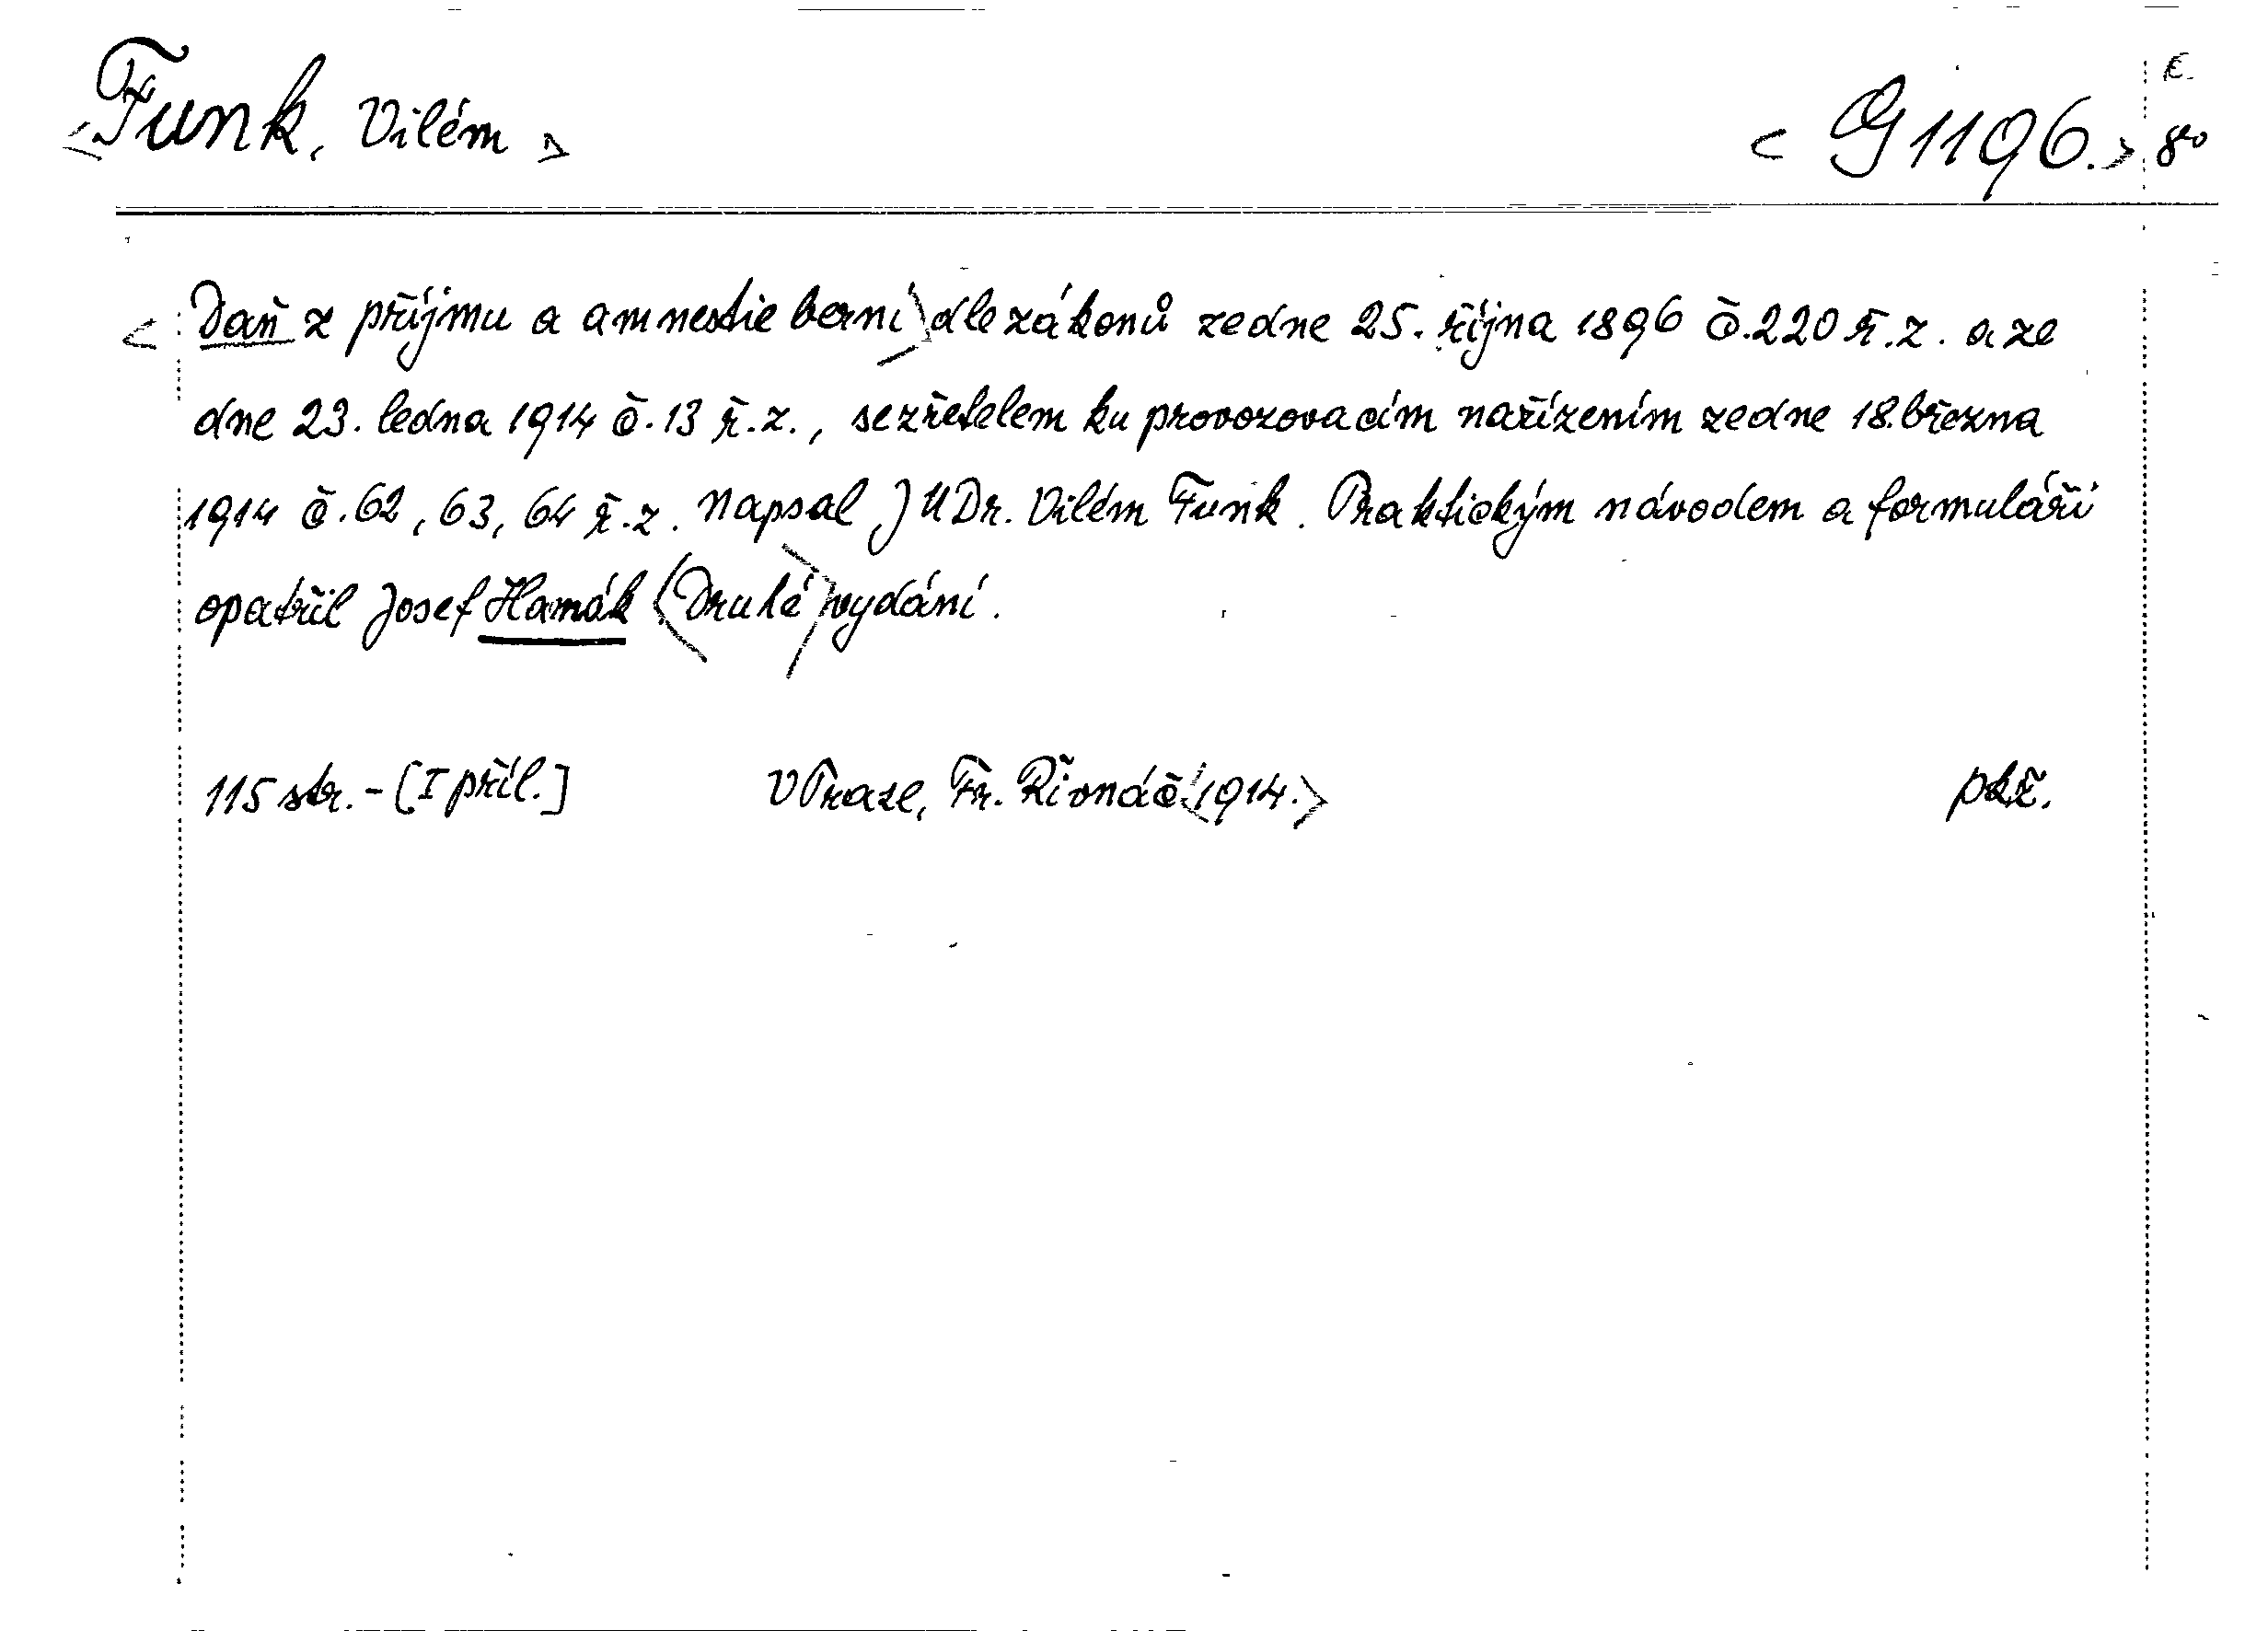 <Funk, Vilém> <G 1196.> 8°
<Daň z příjmu a amnestie berní> dle zákonů ze dne 25. října 1896 č. 220 ř. z. a ze
dne 23. ledna 1914 č. 13 ř. z., se zřetelem ku provozovacím nařízením ze dne 18. března
1914 č. 62, 63, 64 ř. z. Napsal JUDr. Vilém Funk. Praktickým návodem a formuláři
opatřil Josef Hamák <Druhé> vydání.
115 str. - [I příl.] V Praze, Fr. Řivnáč <1914.>